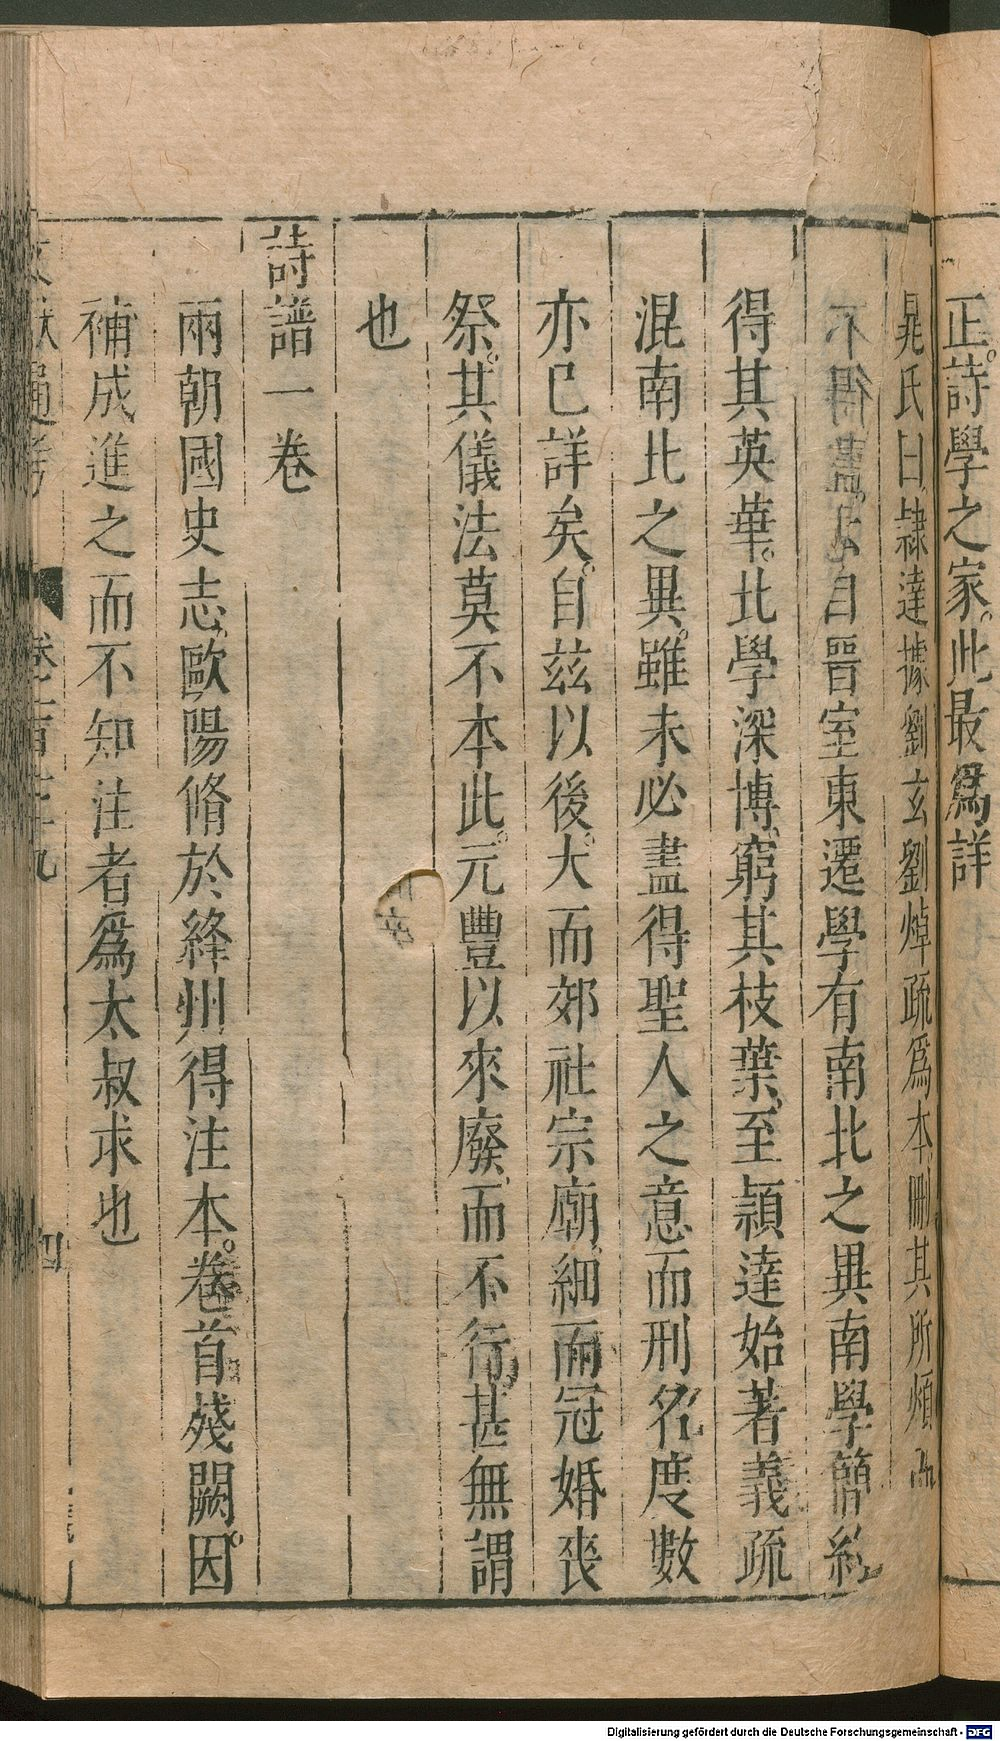 正詩學之家此最爲詳
晁氏曰隷達據劉玄劉焯疏爲本刪其所煩
不得盡見自晉室東遷學有南北之異南學簡約
得其英華北學深博窮其枝葉至穎達始著義疏
混南北之異雖未必盡得聖人之意而刑名度數
亦已詳矣自茲以後大而郊社宗廟細而冠婚喪
祭其儀法莫不本此元豐以來廢而不行甚無謂
也
詩譜一卷
兩朝國史志歐陽脩於絳州得注本卷首殘闕因
補成進之而不知注者爲太叔求也
文獻通考 卷一百七十九 四
Digitalisierung gefördert durch die Deutsche Forschungsgemeinschaft - DFG